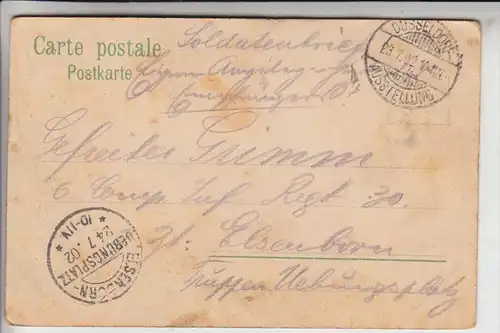 Carte postale
Postkarte
Soldatenbrief
Eigene Angelegenheit
Empfängers
DÜSSELDORF
AUSSTELLUNG
Gefreiter Grimm
6 Comp Inf Regt 30.
Zt. Elsenborn
Truppen Uebungsplatz
ELSENBORN-
UEBUNGSPLATZ
24.7.02
10-11V